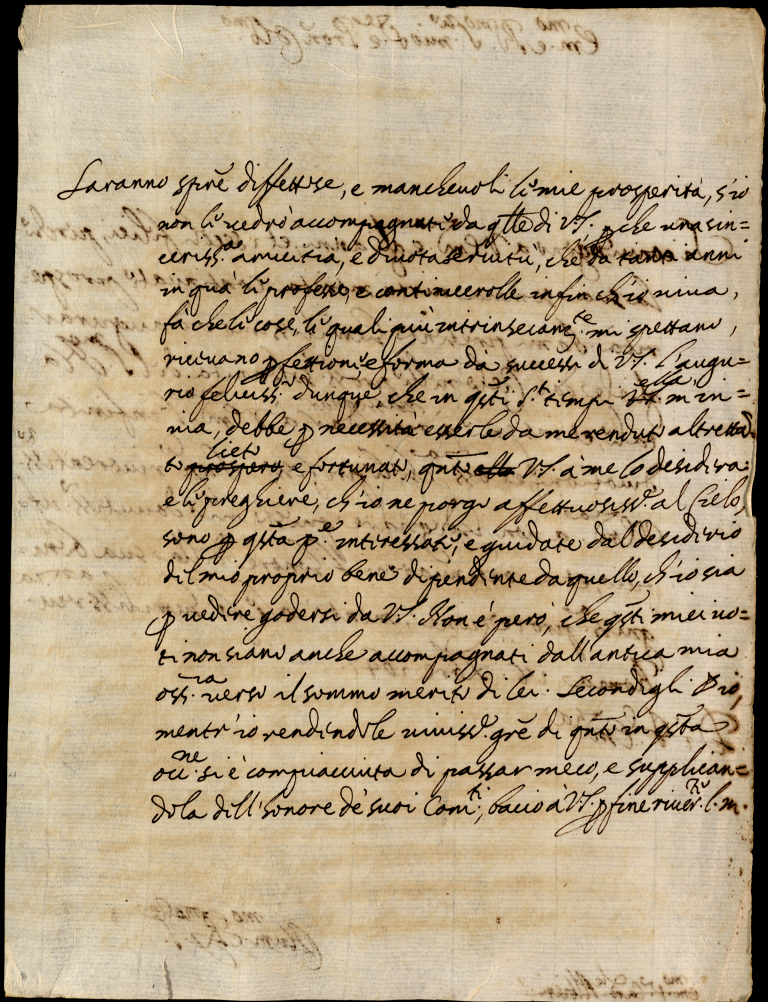 Saranno sp̃re diffettose, e manchevoli le mie prosperità, s'io
non le vedrò accompagnate da q̃lle di V.S. p che una sin=
ceriss.a amicitia, e divota servitù, che da tanti anni
in quà le professo, e continuerolle infin ch'io viva,
fà che le cose, le quali più intrinsecam.te mi spettano,
ricevano pfettione, e forma da successi di V.S. L'augu=
rio feliciss.o dunque, che in q̃sti s.ti tempi V.S. ella m'in=
via, debbe p necessità esserle da me renduto altretta
to prospero lieto e fortunato, q̃nto ella V.S. à me lo desidera
e le preghiere, ch'io ne porgo affettuosiss.e al Cielo,
sono p q̃sta p.e interessate, e guidate dal desiderio
del mio proprio bene dipendente da quello, ch'io sia
p vedere godersi da V.S. Non è però, che q̃sti miei vo=
ti non siano anche accompagnati dall'antica mia
oss.za verso il sommo merito di lei. Secondigli Dio,
mentr'io rendendole viviss.e gr̃e di q̃nto in q̃sta
occ.ne si è compiacciuta di passar meco, e supplican=
dola dell'honore de suoi Com.ti, bacio à V.S. p fine river.te l. m.